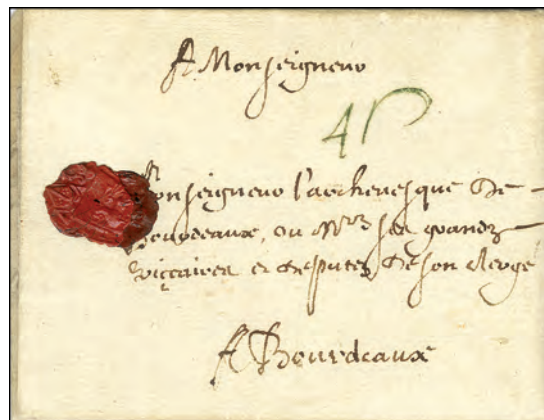 A Monseigneur
4s
Monseigneur l'archevesque de
Bourdeaux, ou Mrs ses grandz
viccaires et deputez de son clergé
A Bourdeaux